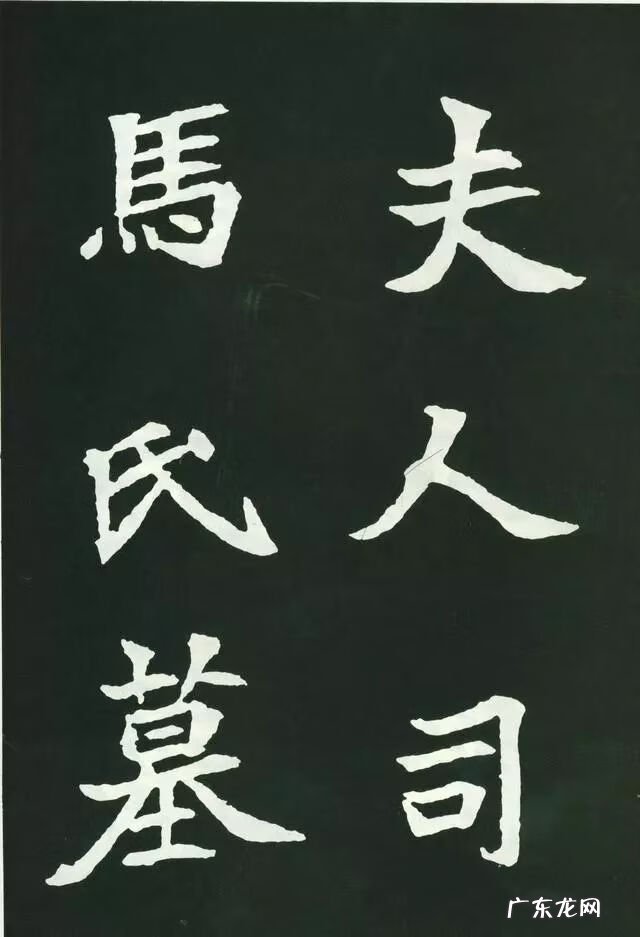 夫人司
馬氏墓
广东龙网